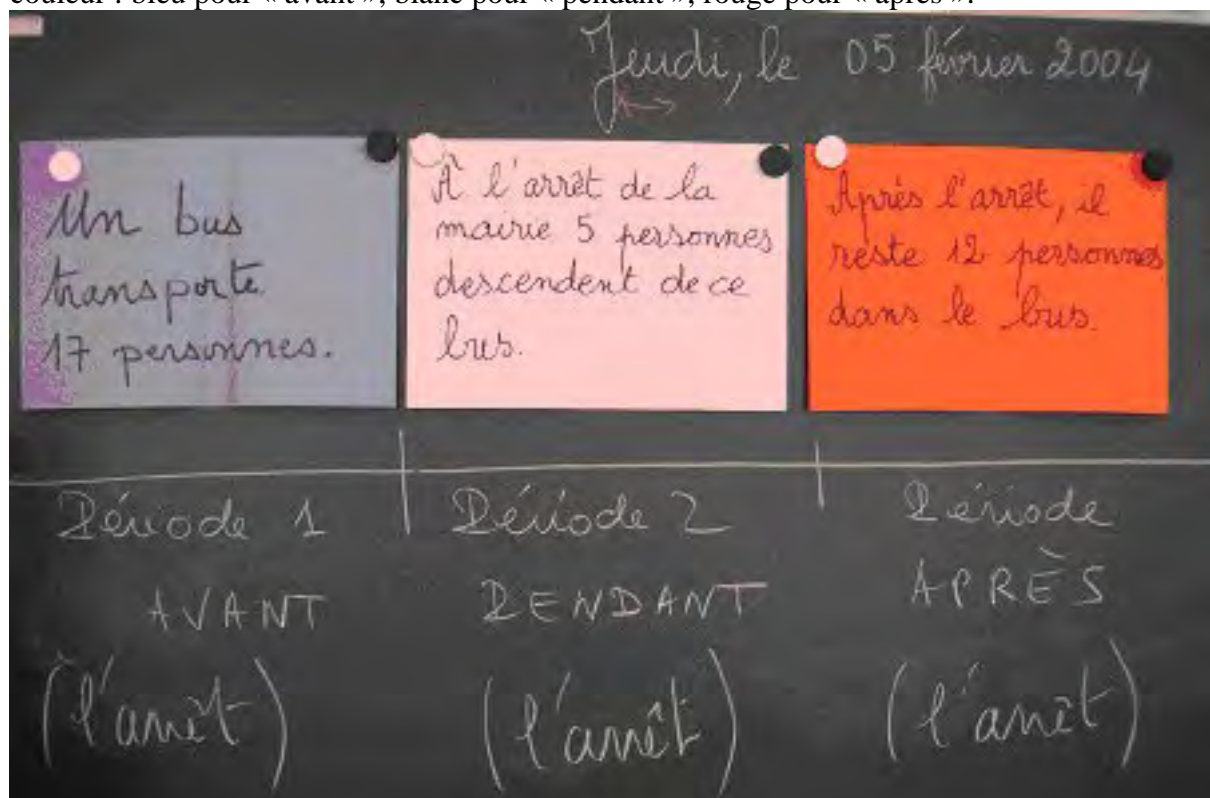 couleur : bleu pour « avant », blanc pour « pendant », rouge pour « après ».
Jeudi, le 05 février 2004
Un bus
transporte
17 personnes.
À l'arrêt de la
mairie 5 personnes
descendent de ce
bus.
Après l'arrêt, il
reste 12 personnes
dans le bus.
Période 1
AVANT
(l'arrêt)
Période 2
PENDANT
(l'arrêt)
Période
APRÈS
(l'arrêt)